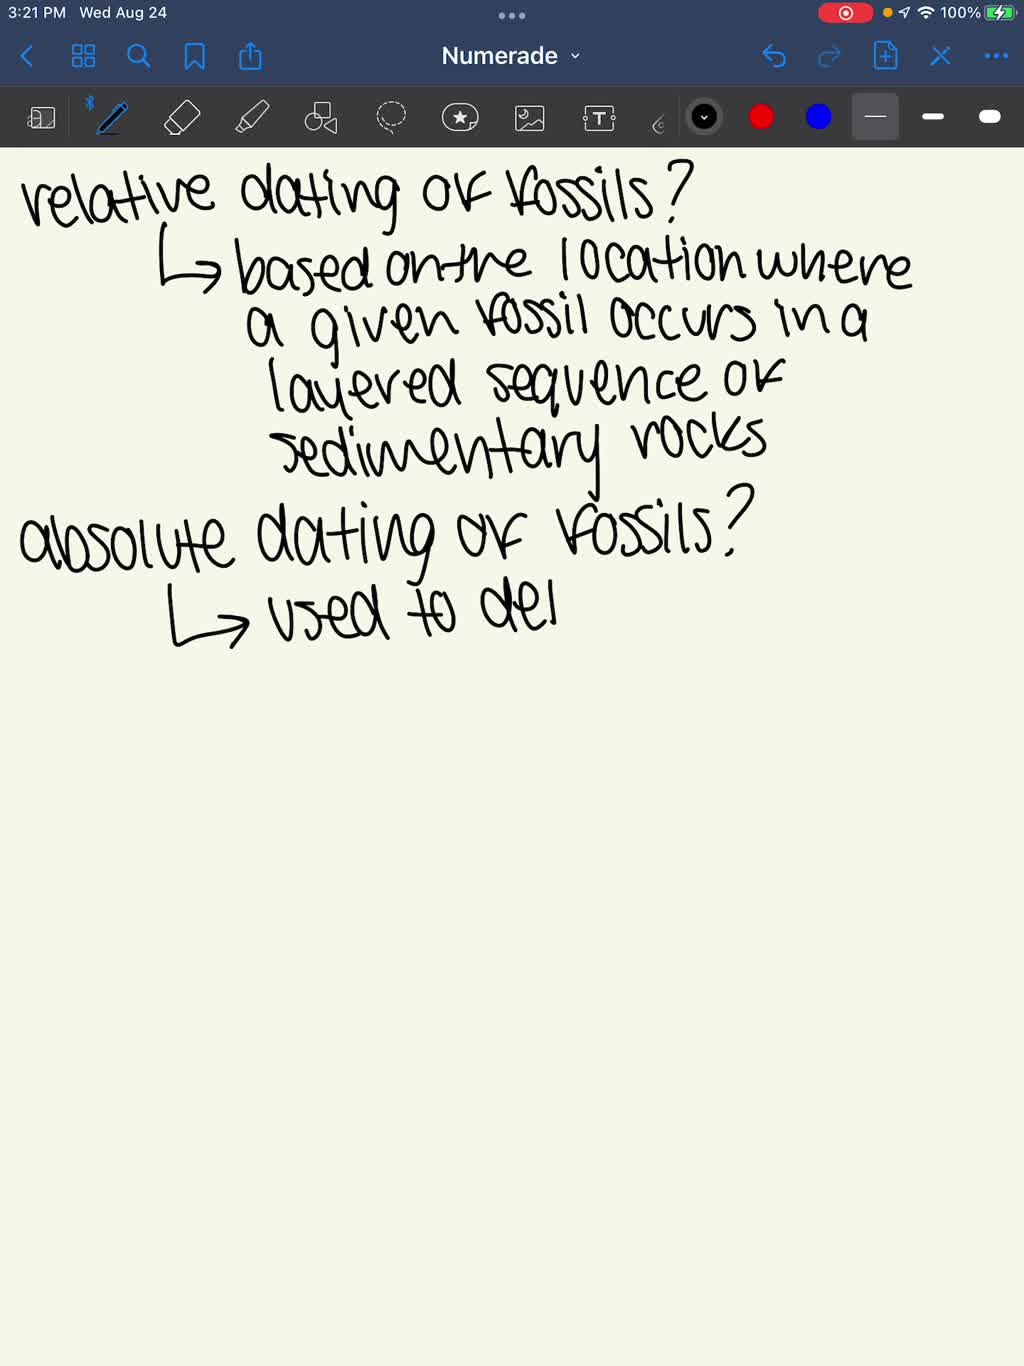 3:21 PM Wed Aug 24
100%
Numerade
T
relative dating of fossils?
based on the location where
a given fossil occurs in a
layered sequence of
sedimentary rocks
absolute dating of fossils?
used to de